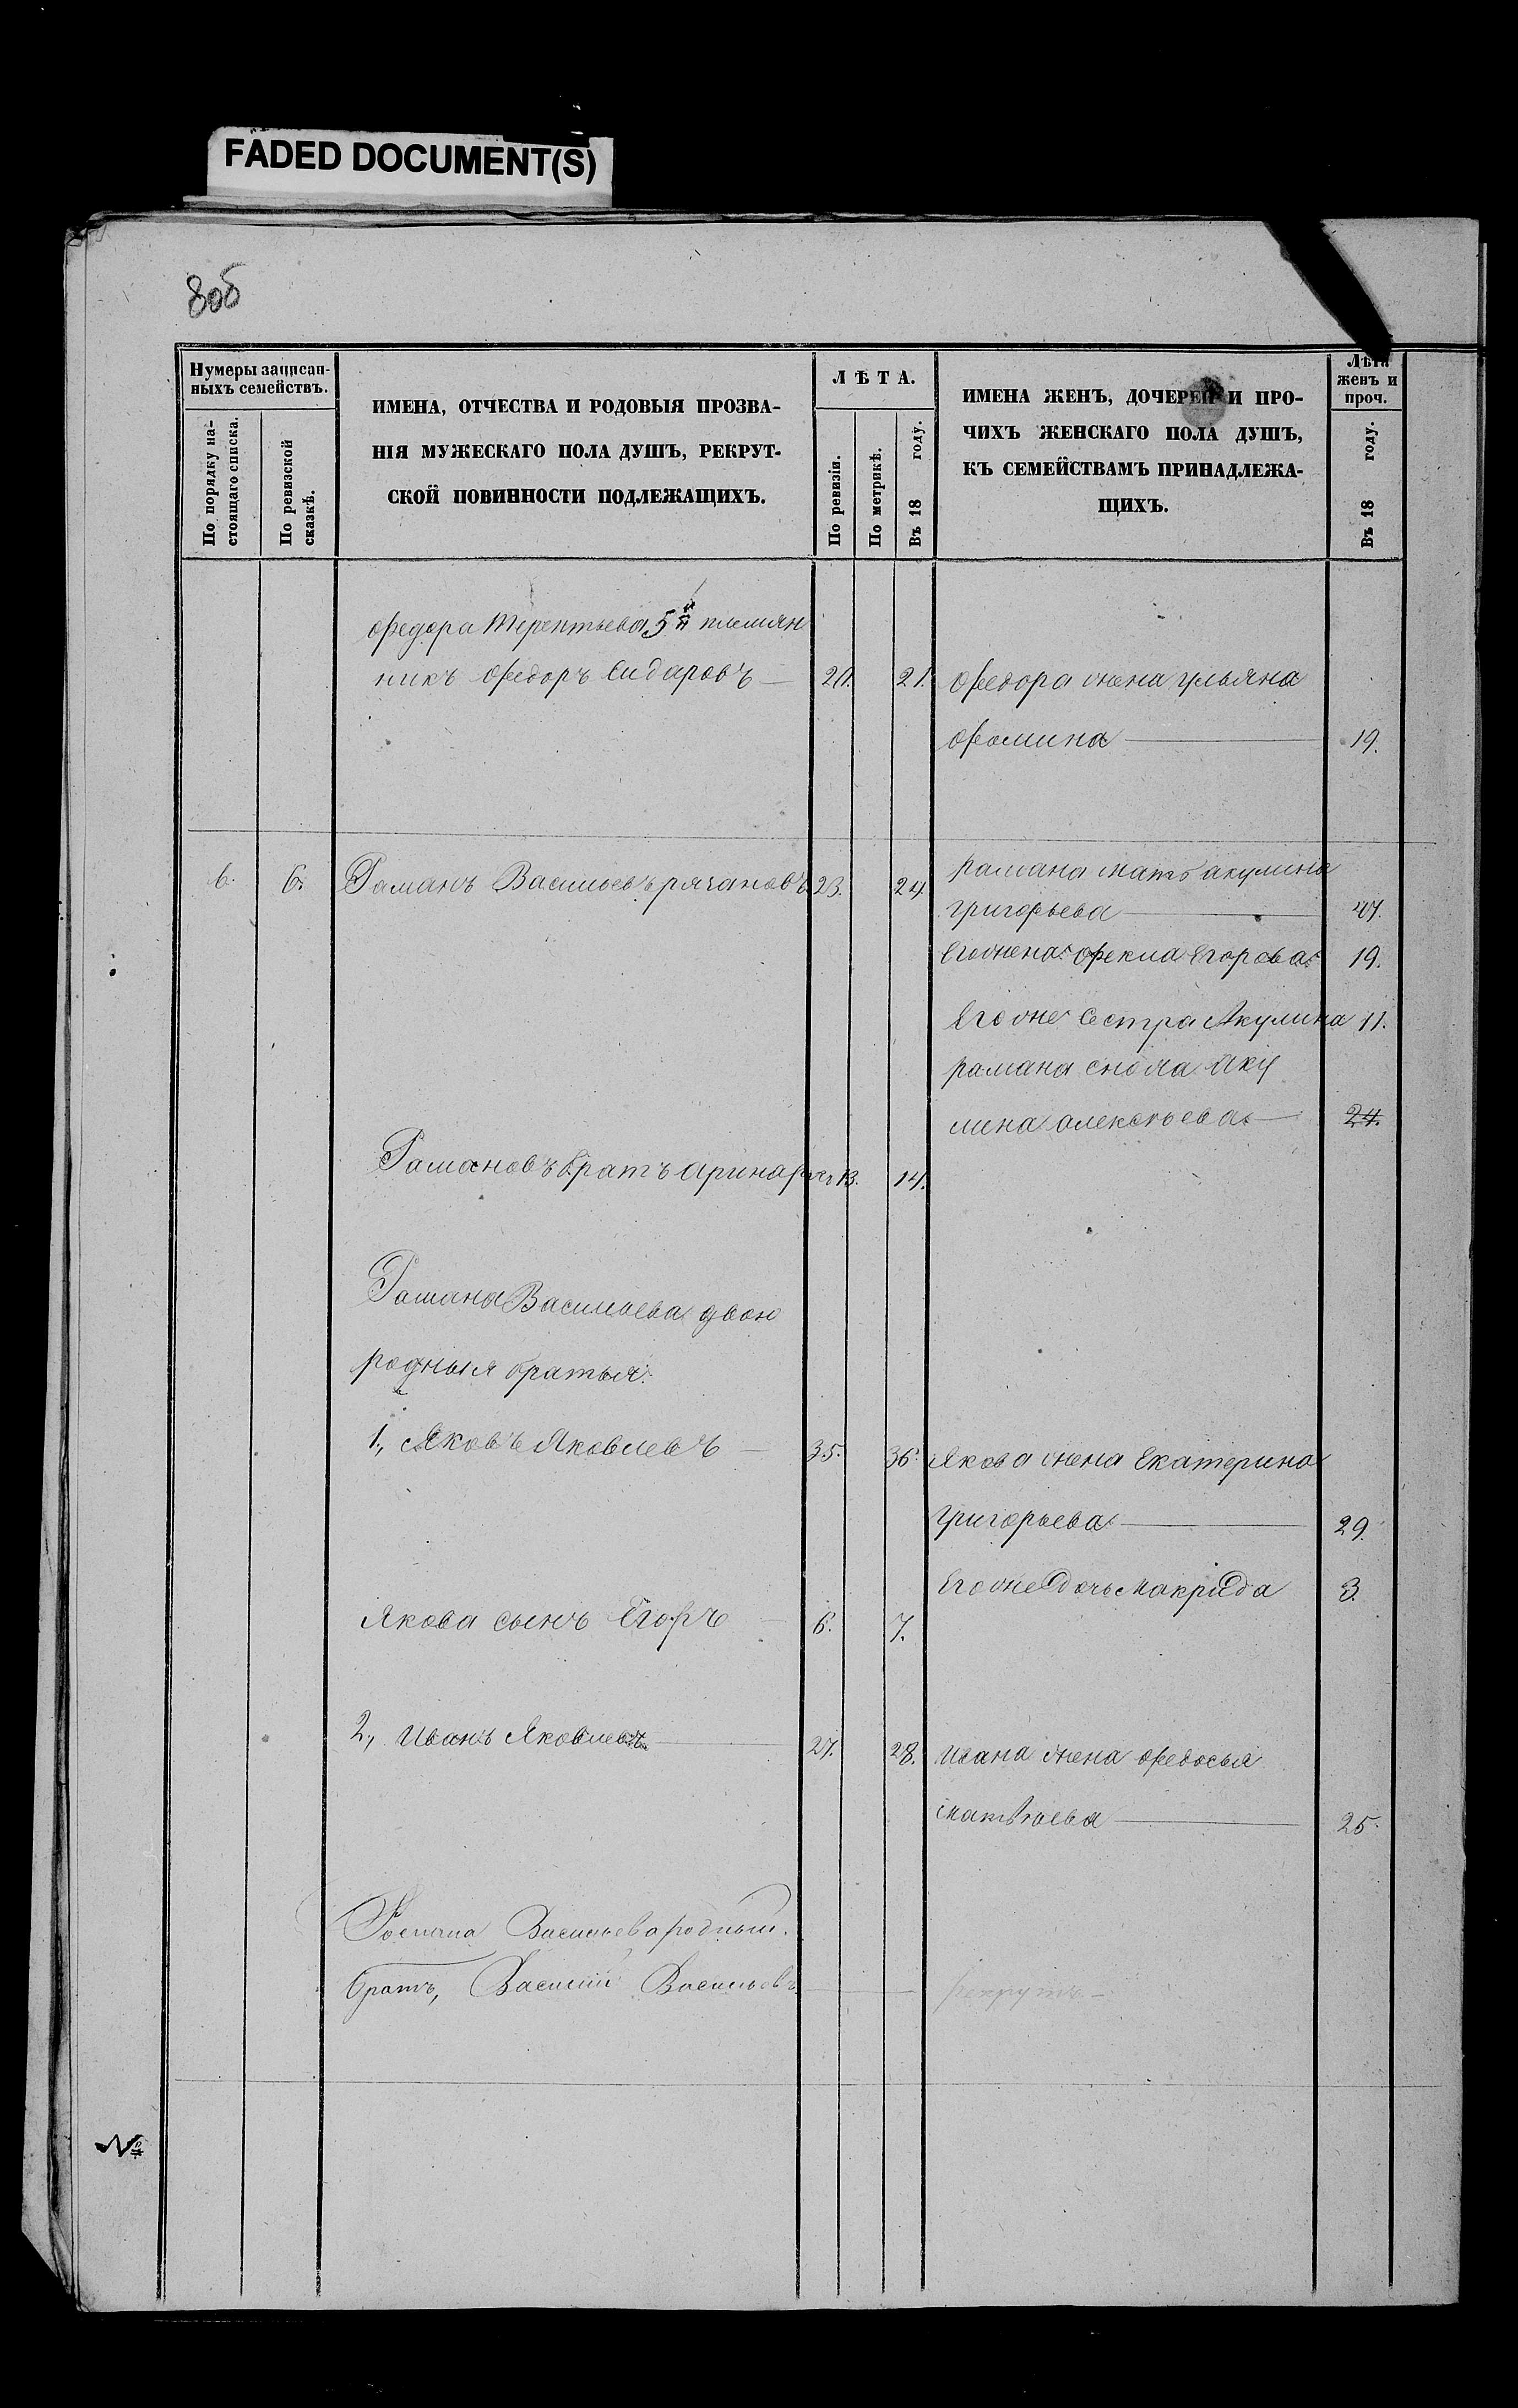 FADED DOCUMENT(S)
80б
Нумеры записан-
ныхъ семействъ.
По порядку на-
стоящаго списка.
По ревизской
сказкѣ.
ИМЕНА, ОТЧЕСТВА И РОДОВЫЯ ПРОЗВА-
НІЯ МУЖЕСКАГО ПОЛА ДУШЪ, РЕКРУТ-
СКОЙ ПОВИННОСТИ ПОДЛЕЖАЩИХЪ.
ЛѢТА.
По ревизіи.
По метрикѣ.
Въ 18 году.
ИМЕНА ЖЕНЪ, ДОЧЕРЕЙ И ПРО-
ЧИХЪ ЖЕНСКАГО ПОЛА ДУШЪ,
КЪ СЕМЕЙСТВАМЪ ПРИНАДЛЕЖА-
ЩИХЪ.
Лѣта
женъ и
проч.
Въ 18 году.
федора терентьева 5й племян
никъ федоръ Сидаровъ — 20. 21. федора жена ульяна
фомина — 19.
6. 6. Раманъ Васильевъ рачановъ 23. 24 рамана мать акулина
григорьева — 47.
Егожена фекла Егорова 19.
Егоже Сестра Акулина 11.
рамана сноха аку
лина алексеева — 24.
Рамановъ братъ аринархъ 13. 14.
Рамана Васильева двою
родныя братья:
1, Яковъ Яковлевъ — 35. 36. Якова жена Екатерина
григорьева — 29.
Егоже дочь макрида 3.
Якова сынъ Егоръ — 6. 7.
2, Иванъ Яковлевъ — 27. 28. ивана жена федосья
матвѣева — 25.
Романа Васильева родный
братъ, Василий Васильевъ — рекрутъ —
№